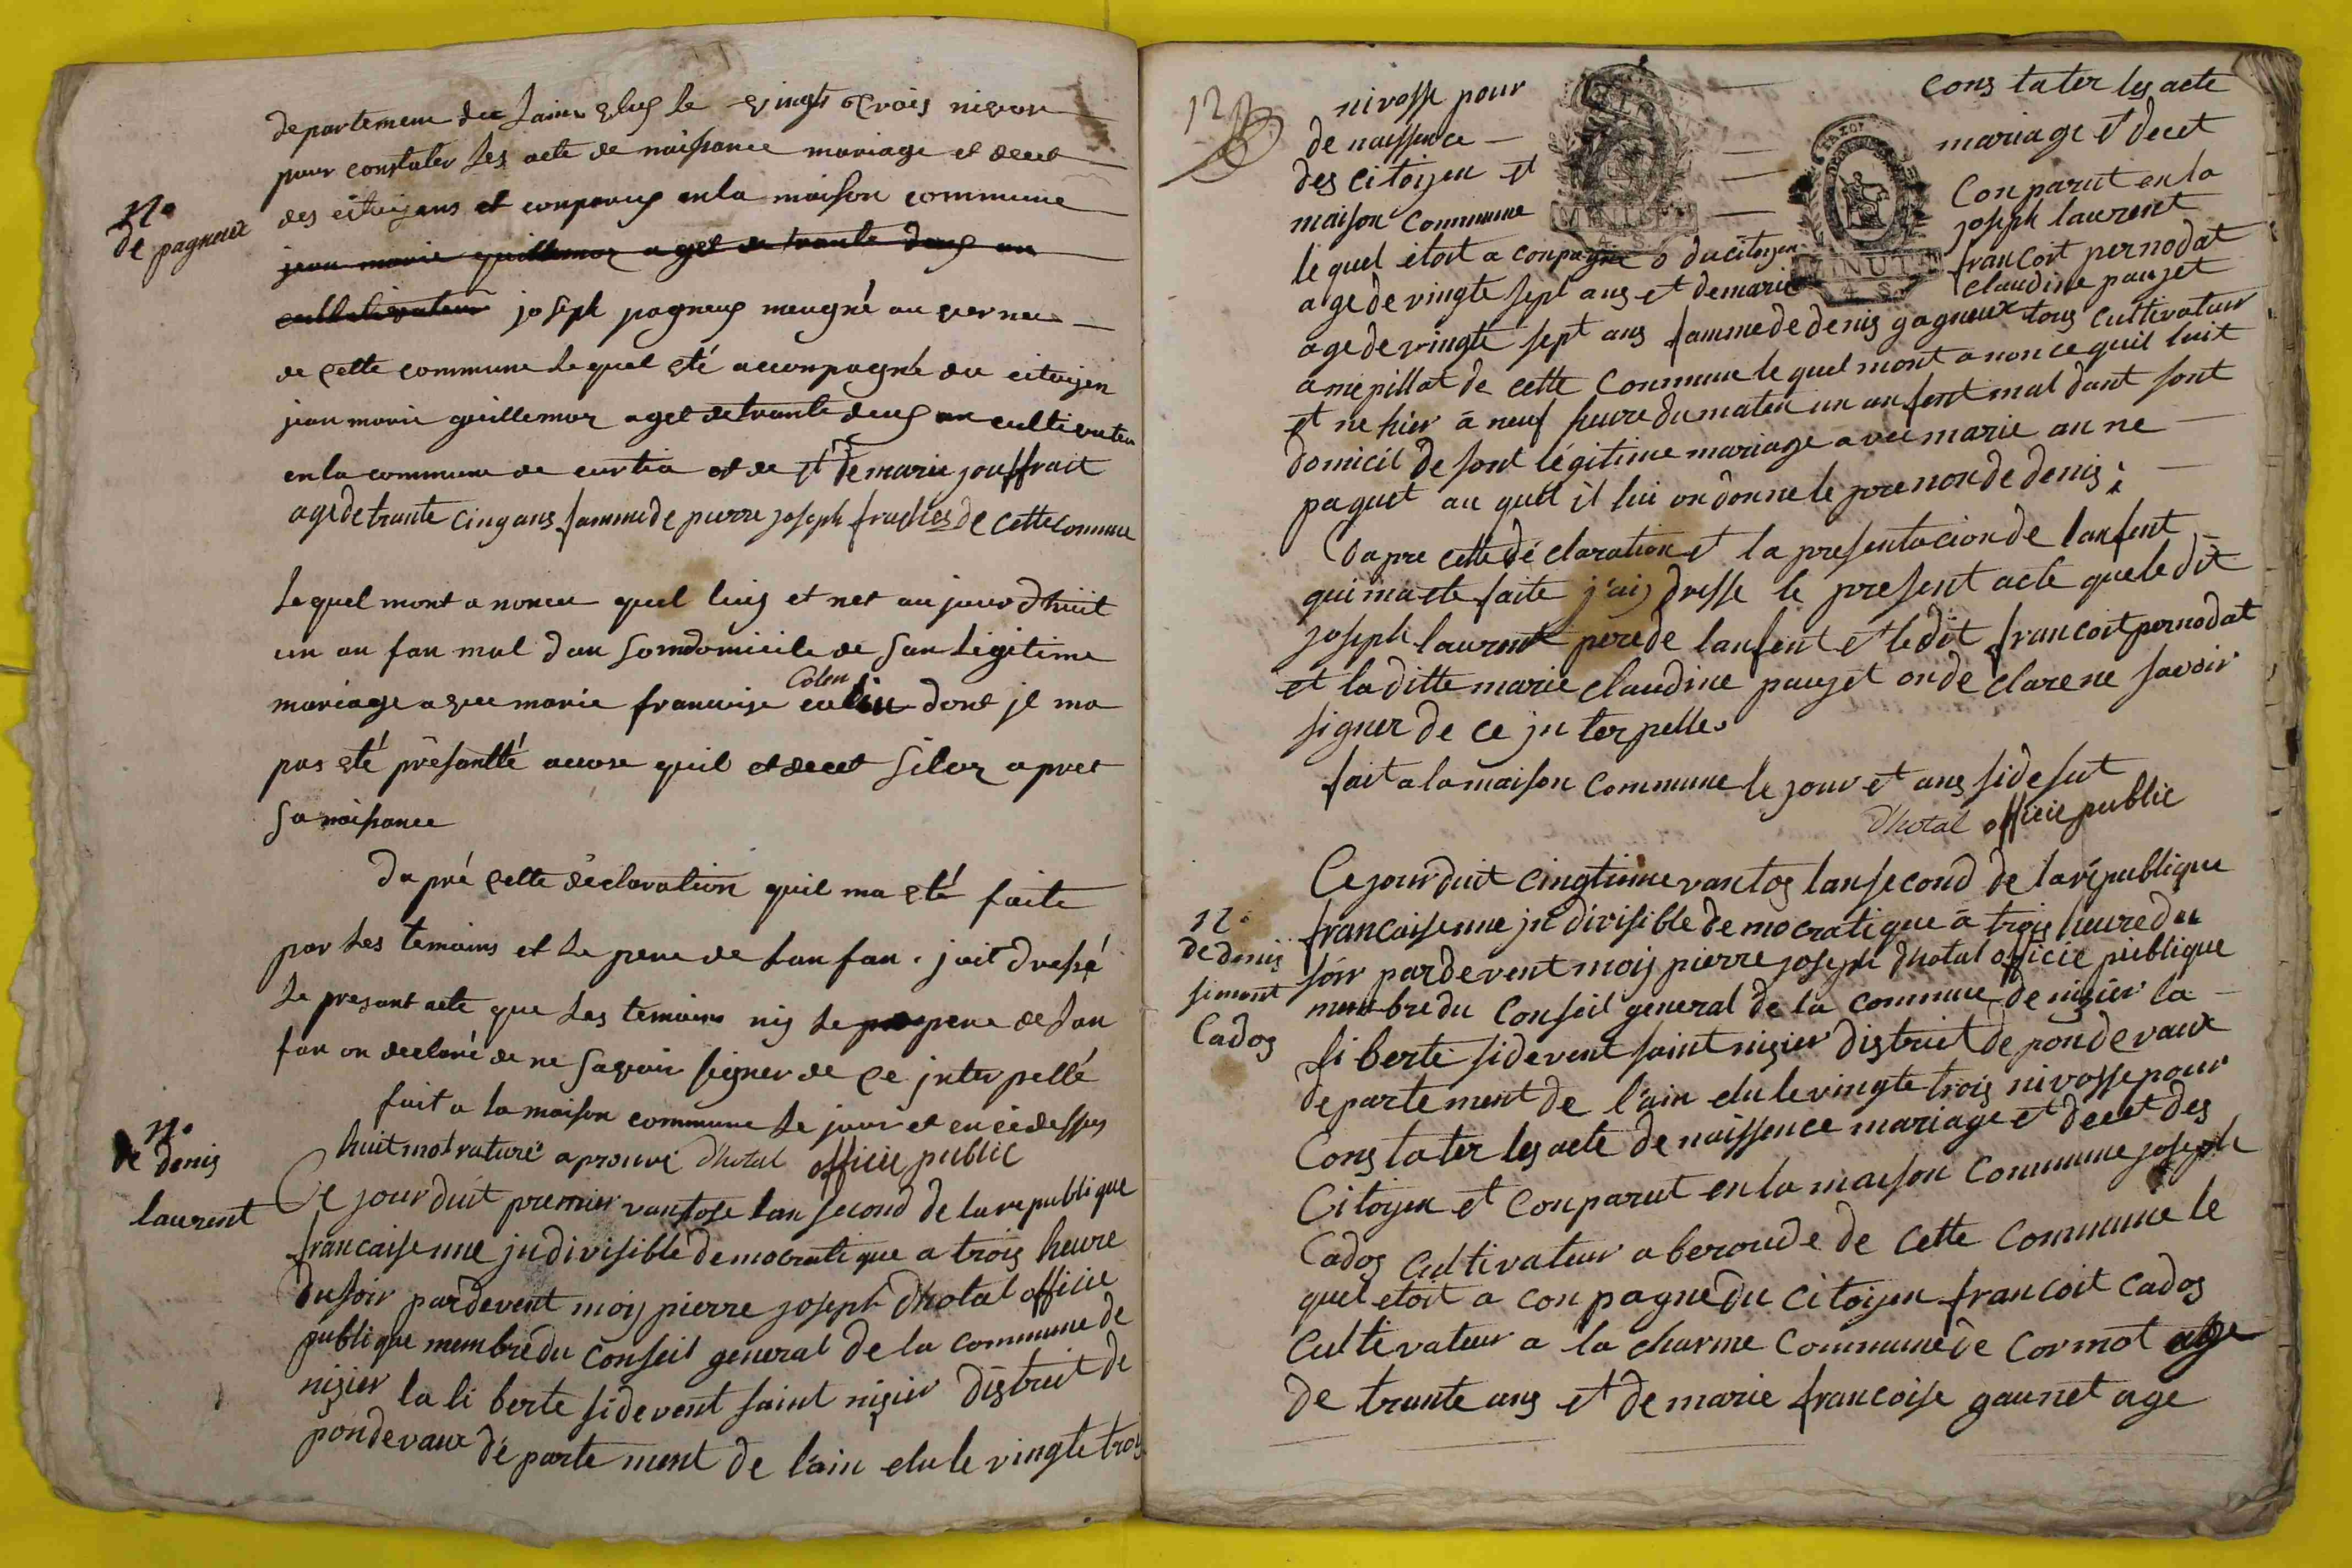 departement de Lain elus le vingt trois nivor
pour constater les acte de naissance mariage et decet
des citoyens et conparus en la maison commune
N°
de pagneux
jean marie guillemoz aget de trante deux an
culltivateur joseph pagneux meugné au vernee
de cette commune lequel eté acconpagné du citoyen
jean marie guillemoz aget de trante deux an cultivateu
en la commune de curtia et de et de marie jouffrait
age de trante cinq ans famme de pierre joseph fraches de cette comune
Lequel mont anonceu quel luy et net au jourdhuit
un an fan mal dan son domicile de san legitime
mariage avec marie francoise Colen dont jl ma
pas eté présantté acose quil et decet sitoz apret
sa naisance
Dapré cette déclaration quil ma eté faite
par les temoins et le pere de lan fan. jait dressé
le presant acte que les temoins niy le pere de lan
fan on declaré de ne savoir signer de ce jnterpellé
fait a la maison commune le jour et en cidessus
huit mot raturé aprouvé Dhotal officie public
N°
de denis
laurent
Ce jourduit premier vantose lan second de la republique
francaisenne jndivisible democratique a trois heure
du soir pardevent moy pierre joseph Dhotal officie
publique membre du conseil general de la commune de
nizier la li berte sidevent saint nizier district de
pondevaux departement de lain elu le vingte trois
12
nivosse pour constater les acte
de naissence mariage et decet
des citoyen et conparut en la
maison commune joseph laurent
lequel etoit a conpagné du citoyen francoit pernodat
age de vingte sept ans et de marie claudine paujet
age de vingte sept ans famme de denis gagneux tous cultivateur
a mepillat de cette commune le quel mont anonce quil luit
et ne hier a neuf heure du maten un anfent mal dant sont
domicil de sont légitime mariage avec marie anne
paquet au quel il lui on donne le prenon de denis;
Dapre cette déclaration et la presentacion de lanfent
qui maete faite j'aiy dresse le present acte que le dit
joseph laurent père de lanfent et le dit francoit pernodat
et la ditte marie claudine paujet on de clare ne savoir
signer de ce jnterpelle
fait a la maison commune le jour et ans sidesut
Dhotal officie public
N°
de denis
simont
Cados
Ce jourduit cingtieme vantos lan second de la république
francaisenne jndivisible democratique a trois heure du
soir pardevent moiy pierre joseph Dhotal officie publique
membre du conseil general de la commune de nizier la
liberte sidevent saint nizier district de pondevaux
departement de l'ain elu le vingte trois nivosse pour
constater les acte de naissence mariage et decet des
citoyen et conparut en la maison commune joseph
Cados cultivateur a beroude de cette commune le
quel etoit a conpagne du citoyen francoit cados
cultivateur a la charme commune de cormot age
de trante ans et de marie francoise gaunet age
MINUTE
4 S
MINUTE
4 S